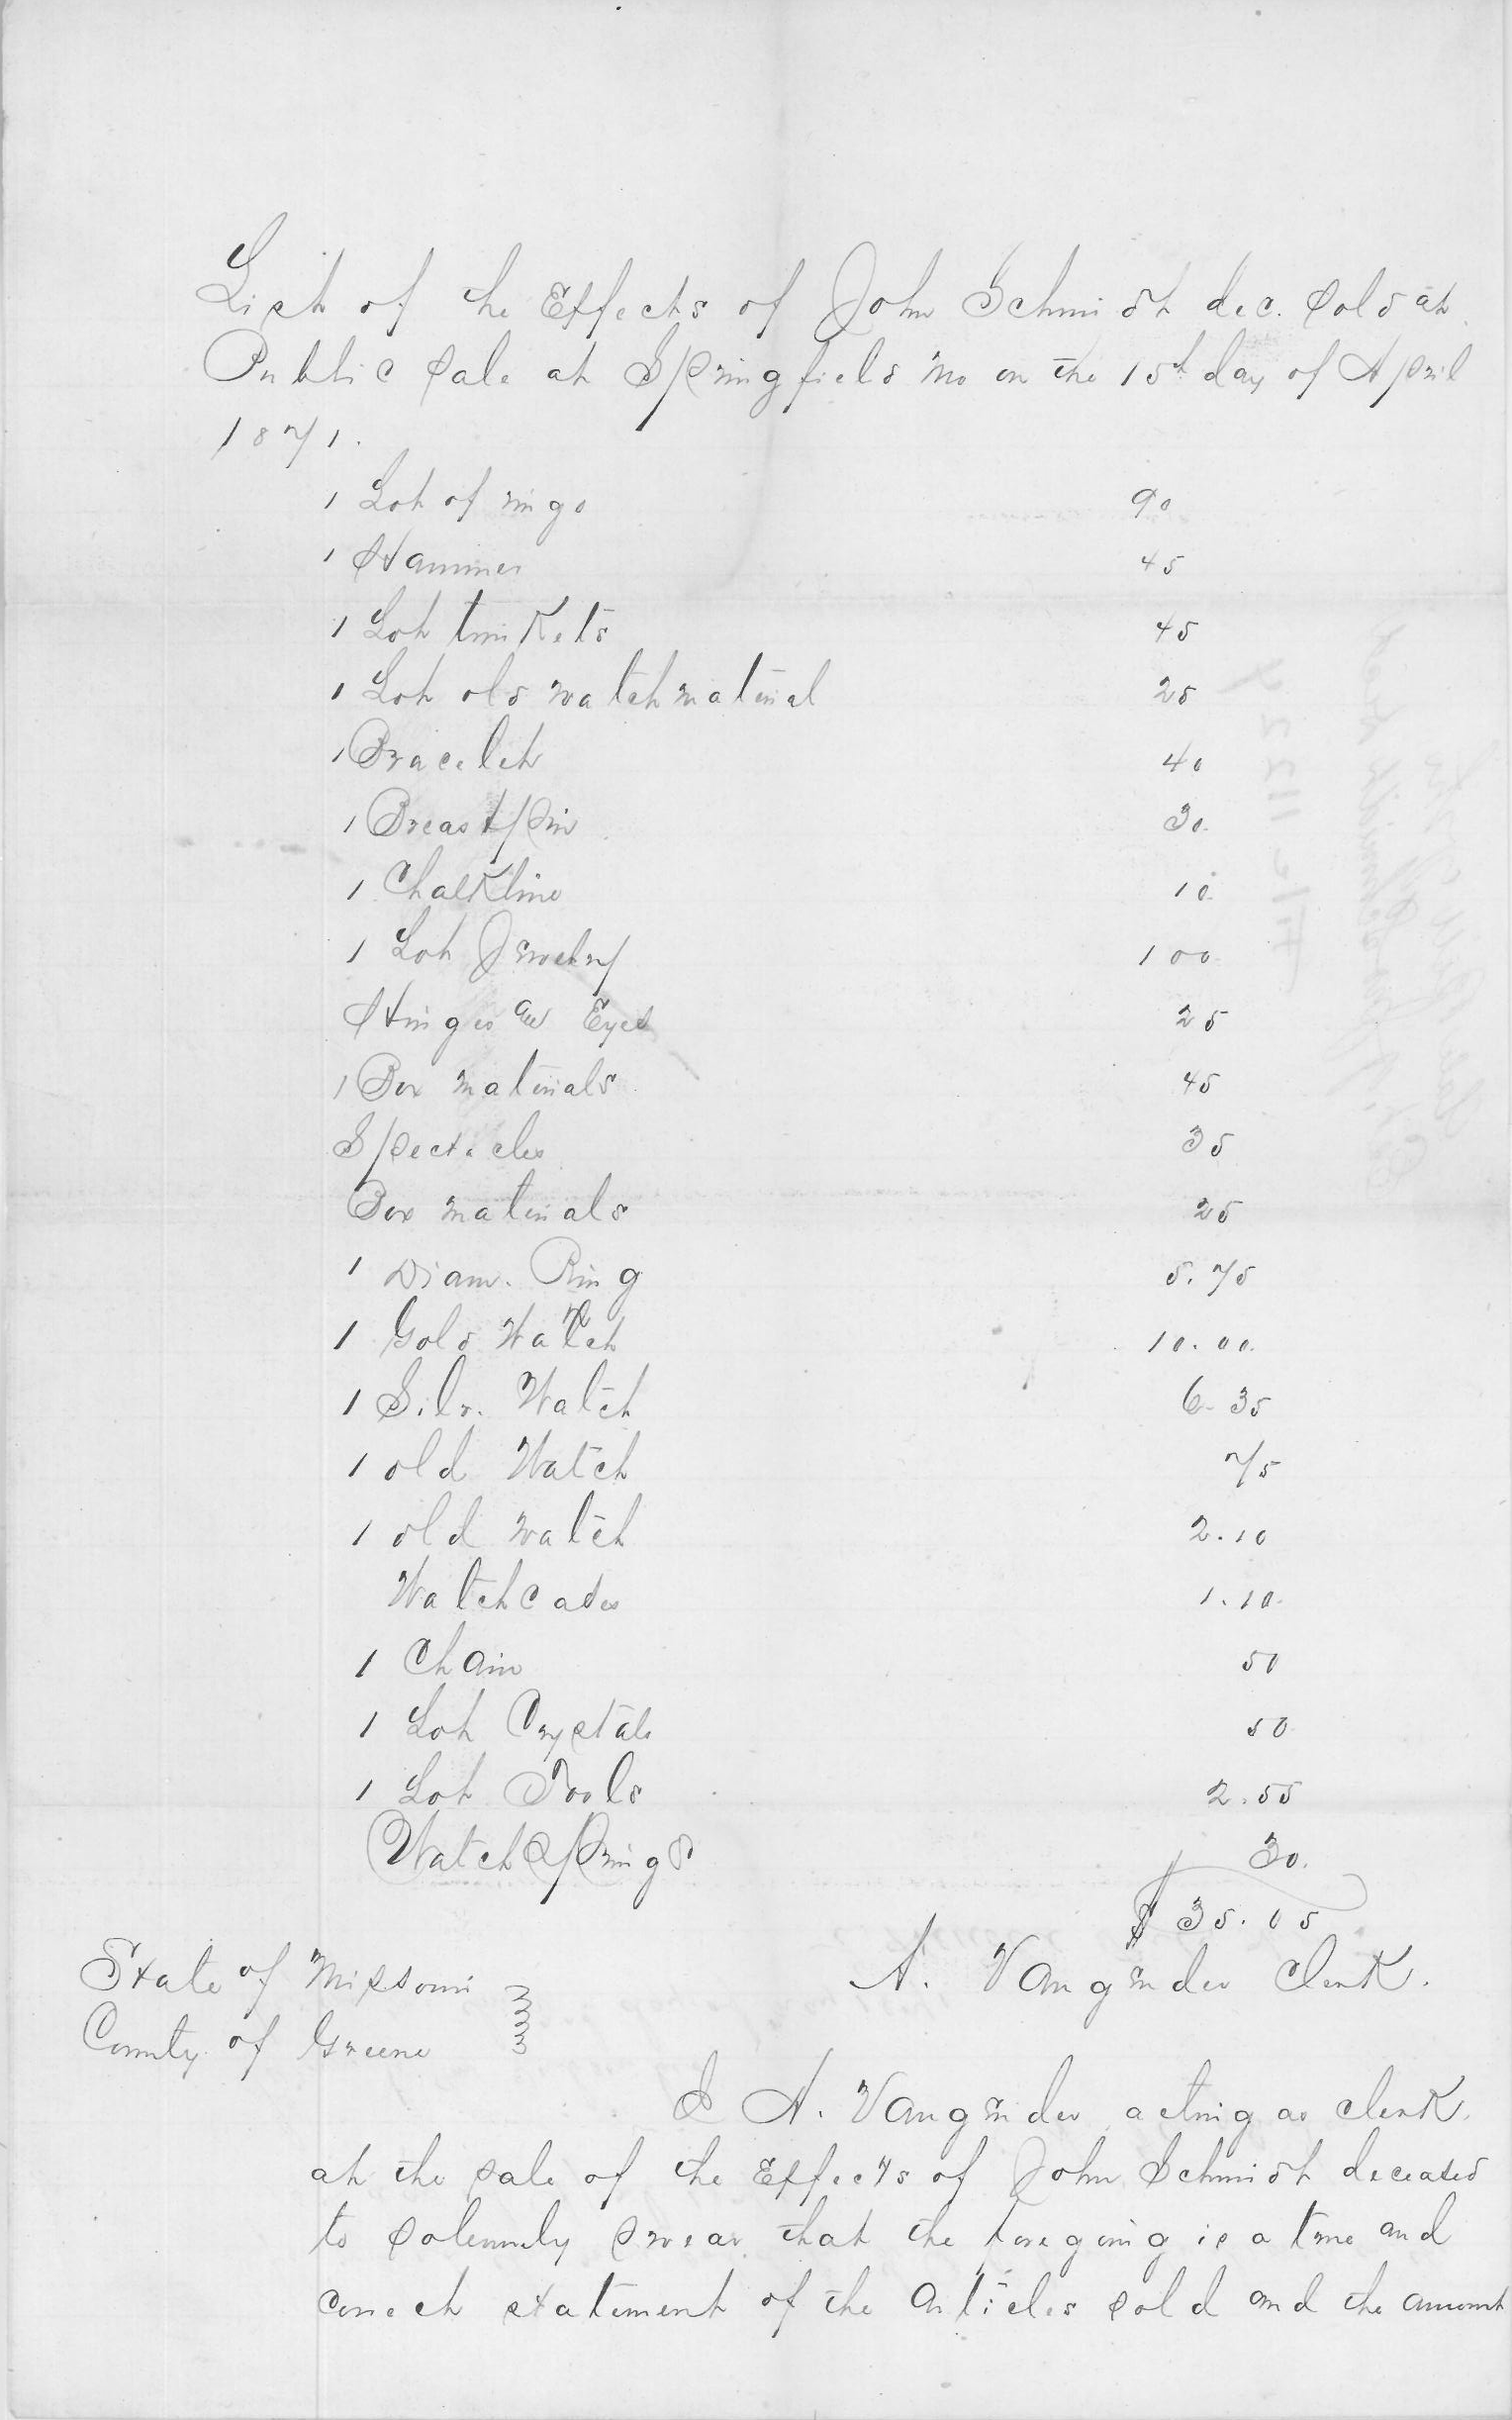 List of the Effects of John Schmidt dec. sold at
Public sale at Springfield Mo on the 15th day of April
1871.
1 Lot of rings 90
1 Hammer 45
1 Lot trinkets 45
1 Lot old watchmaterial 25
1 Bracelet 40
1 Breastpin 30.
1 Chalkline 10.
1 Lot Jewelry 1 00
Hinges and Eyes 25
1 Box materials 45
Spectacles 35
Box materials 25
1 Diam. Ring 5.75
1 Gold Watch 10.00.
1 Silv. Watch 6.35
1 old Watch 75
1 old watch 2.10
Watchcases 1.10.
1 Chain 50
1 Lot Crystals 50
1 Lot Tools 2.55
Watchsprings 30.
$35.05
A. Vanginder Clerk.
State of Missouri
County of Greene
I A. Vanginder acting as clerk
at the sale of the Effects of John Schmidt deceased
to solemnly swear that the foregoing is a true and
correct statement of the articles sold and the amount